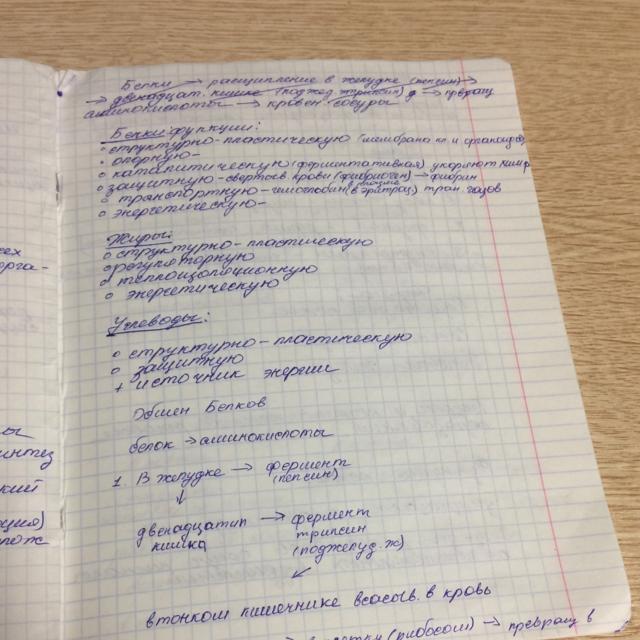 Белки → расщипление в желудке (пепсин) →
→ двенадцат. кишке (поджел. трипсин) → превращ
аминокислоты → кровен. сосуды
Белки функции:
структурно-пластическую (мембрана кл и органоидов)
опорную-
каталитическую (ферментативная) ускоряют хим р
защитную-свертыв крови (фибриоген) → фибрин
транспортную-гемоглобин (в эритроц) тран. газов
энергетическую-
Жиры:
структурно-пластическую
регуляторную
теплоизоляционную
энергетическую
Углеводы:
структурно-пластическую
защитную
+ источник энергии
Обмен Белков
белок → аминокислоты
1 В желудке → фермент
(пепсин)
↓
двенадцатип → фермент
кишка трипсин
(поджелуд. ж)
в тонком кишечнике всасыв. в кровь
(рибосом) → превращ в
всех
ерга-
ты
интез
ский
ция)